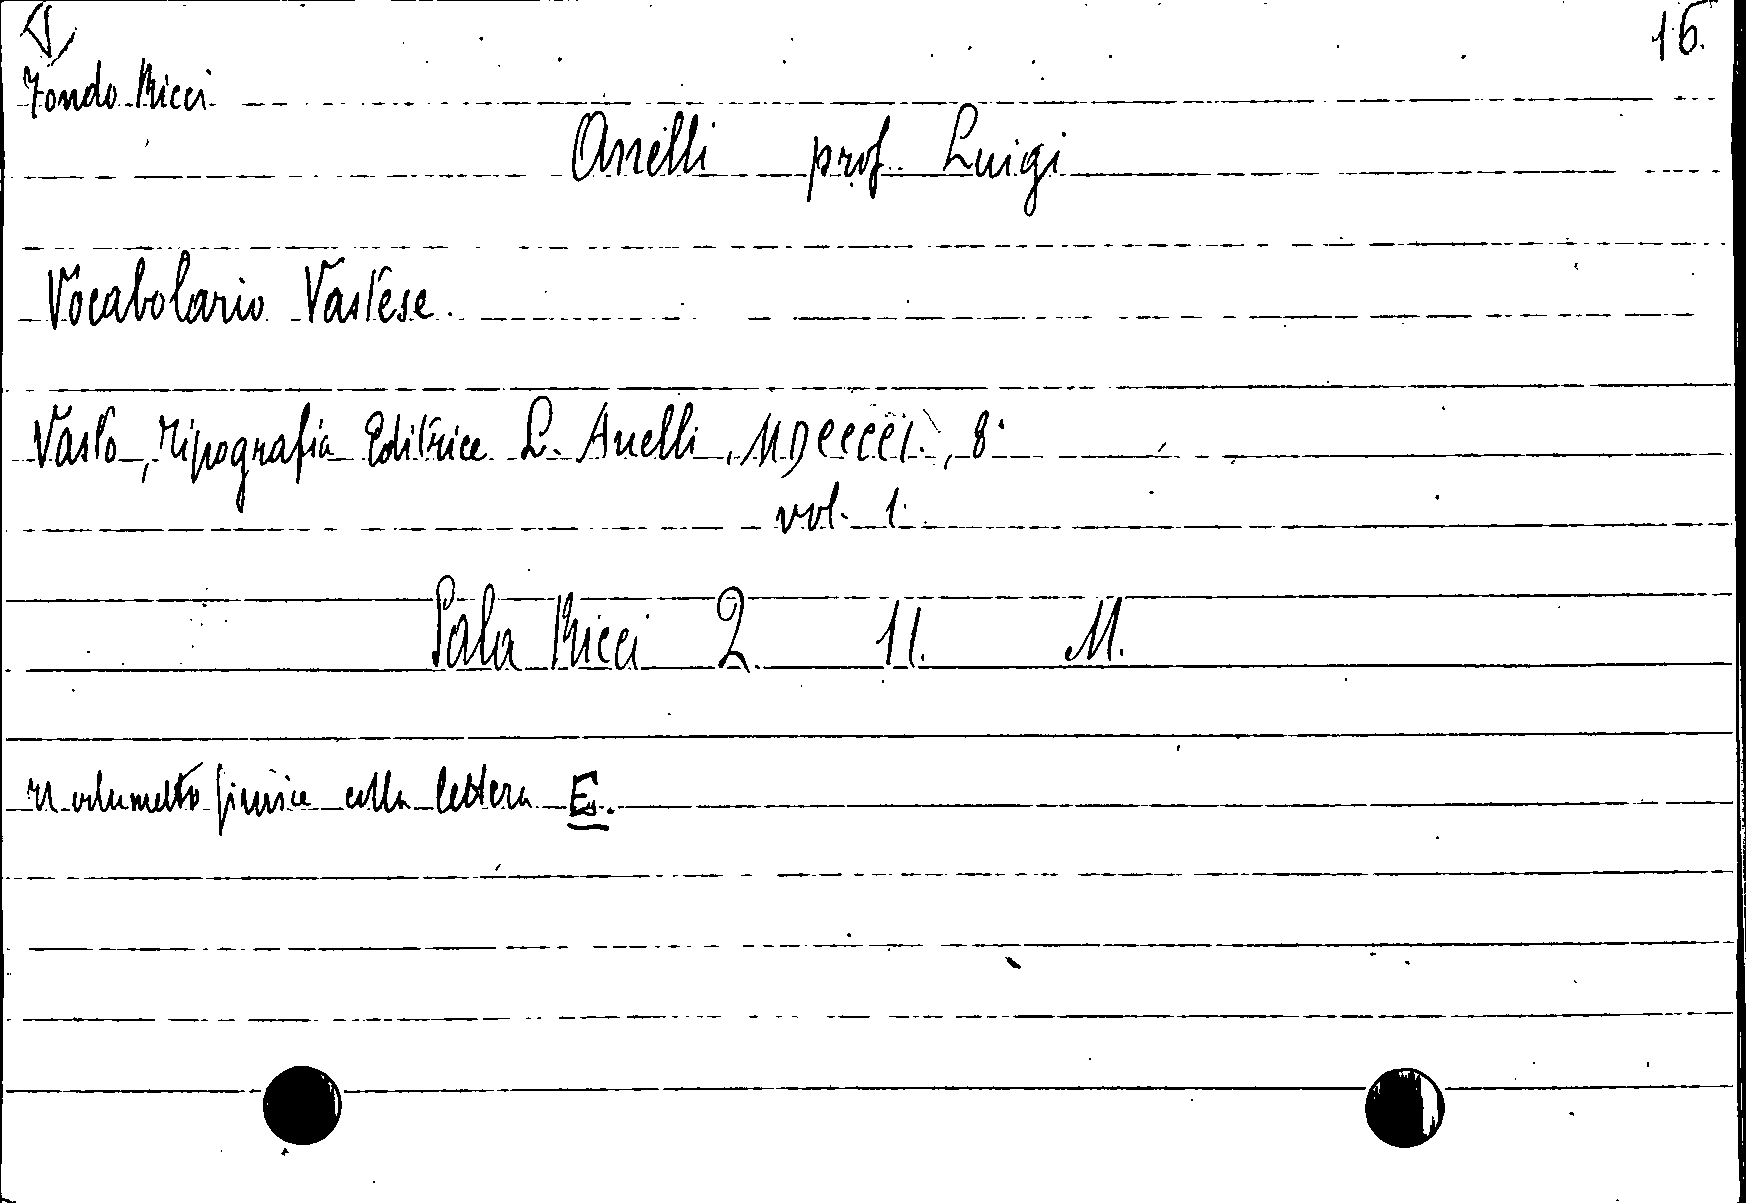 16.
Fondo Ricci
Anelli prof. Luigi
Vocabolario Vastese.
Vasto, Tipografia Editrice L. Anelli, MDCCCCI., 8°
vol. 1.
Sala Ricci 2. 11. M.
Il volumetto finisce colla lettera E.